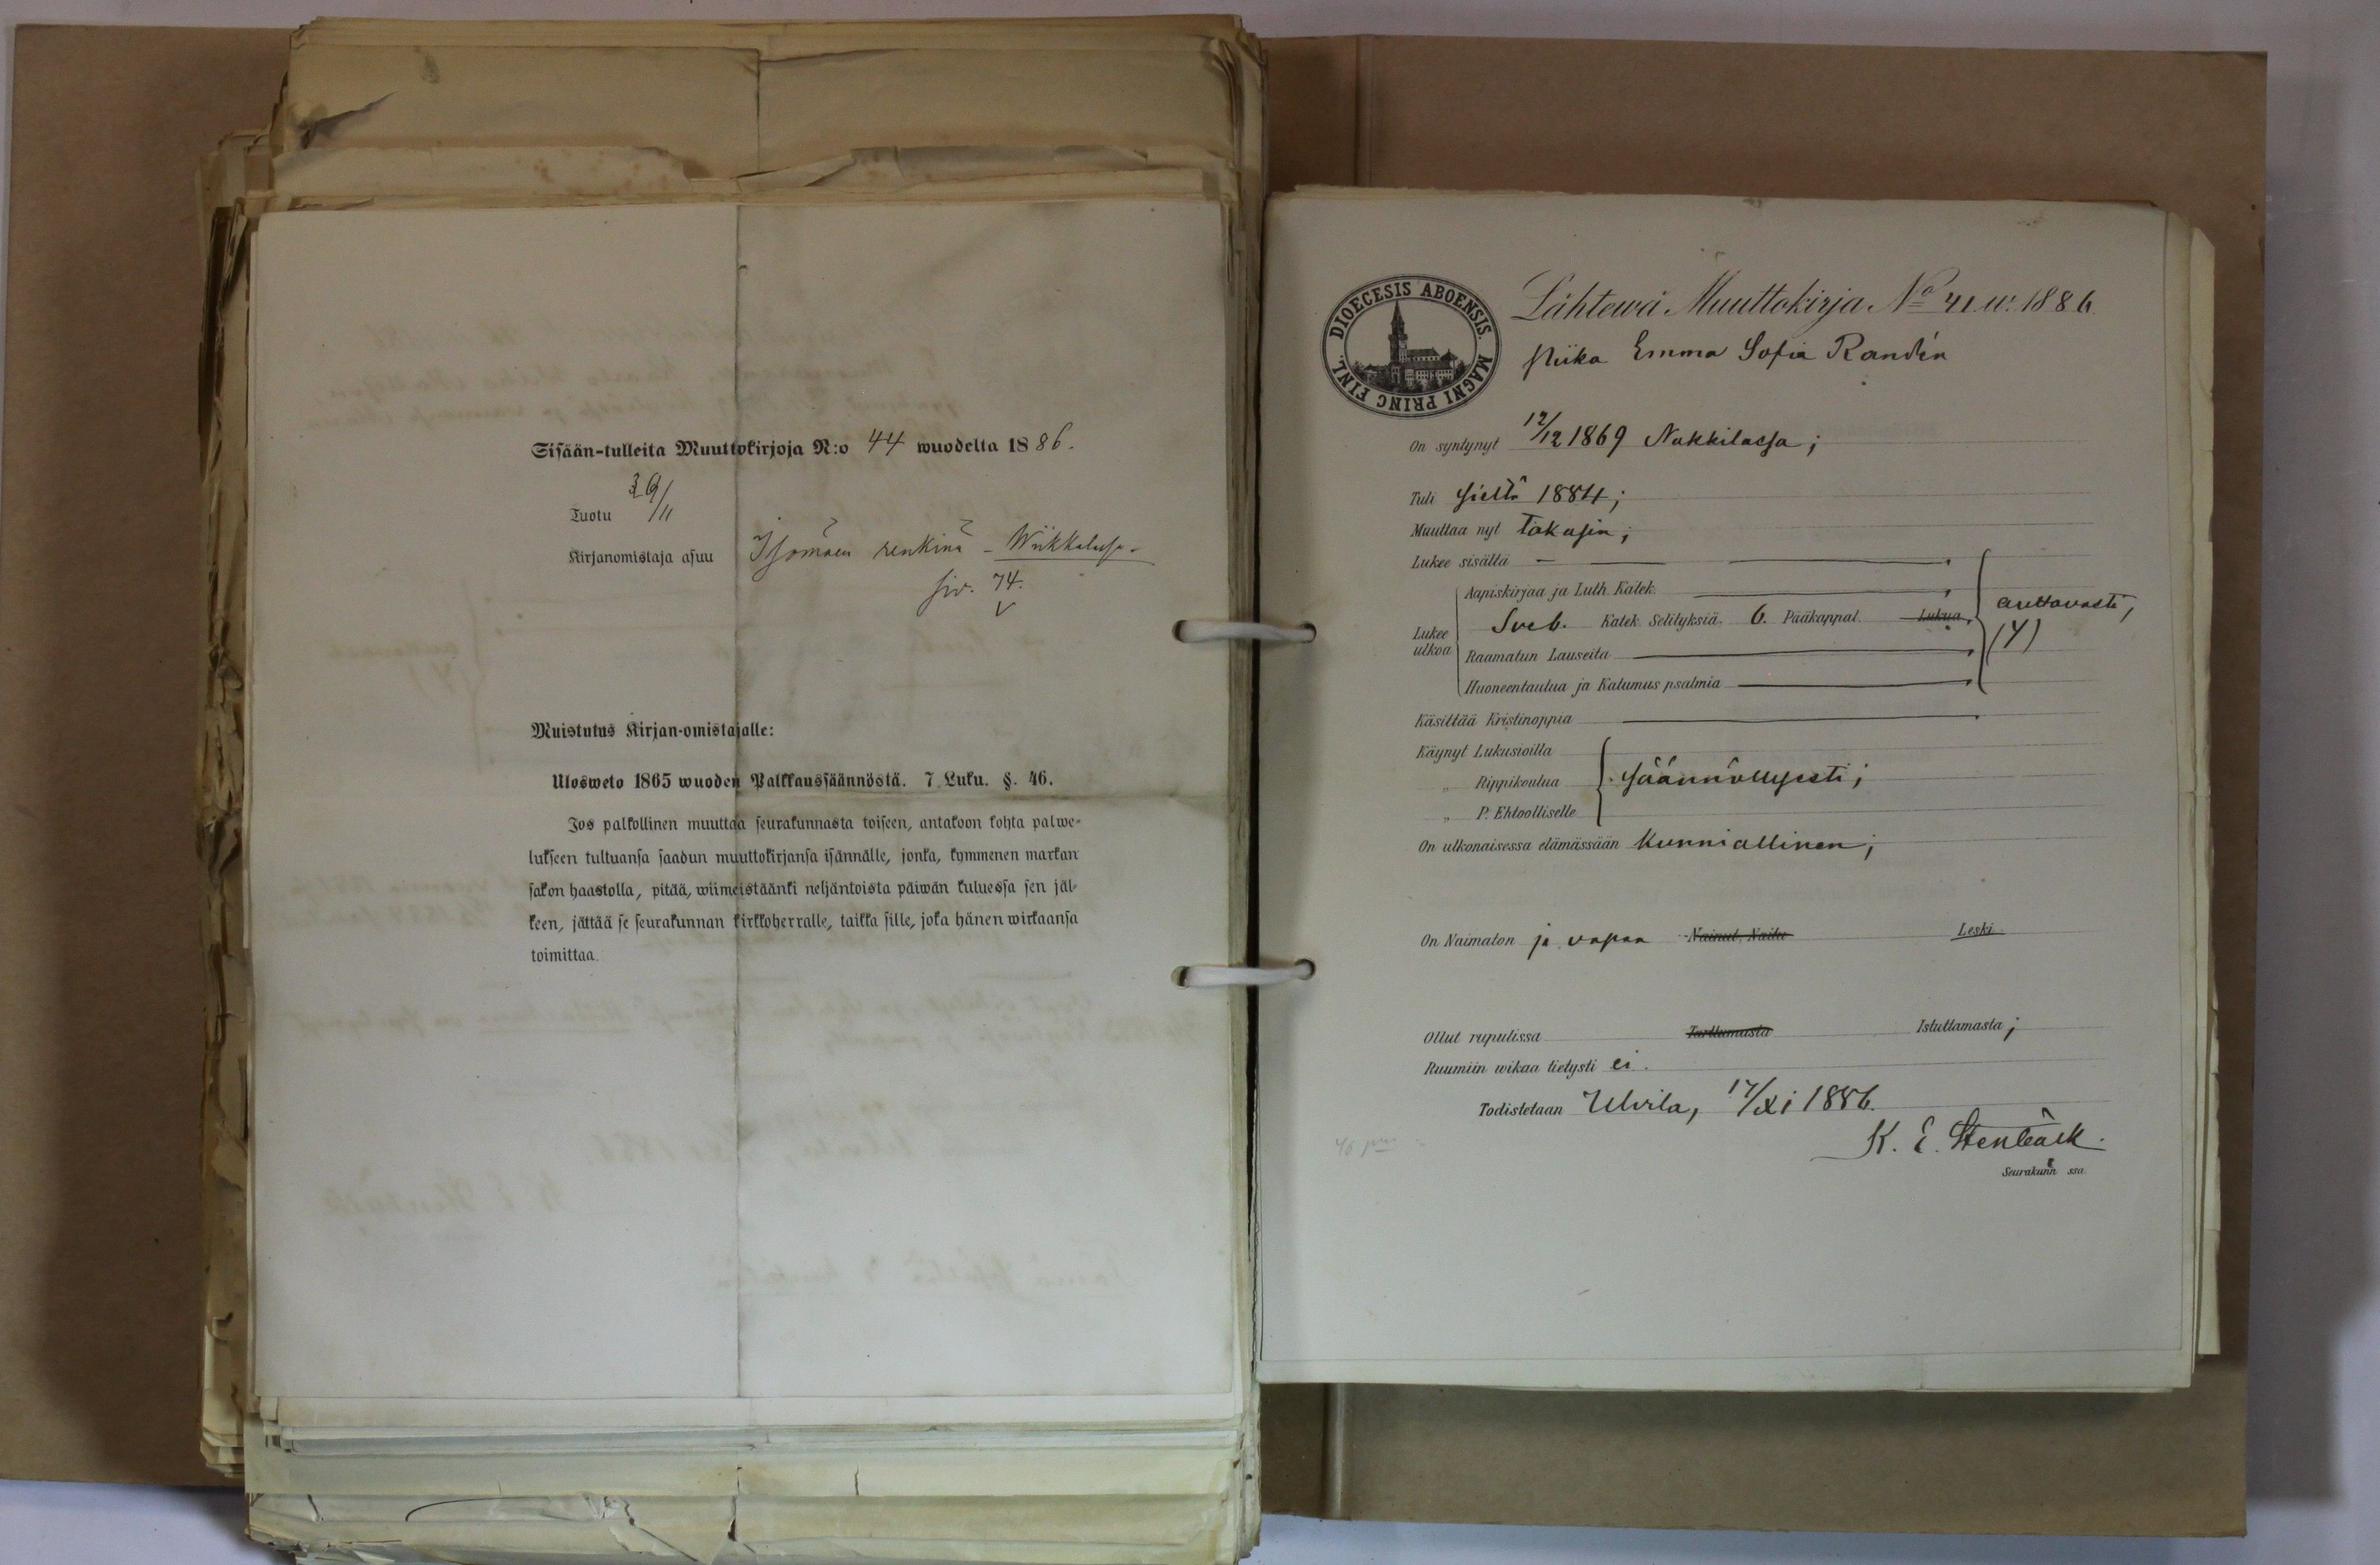 Sisään-tulleita Muuttokirjoja N:o 44 wuodelta 1886.
Tuotu /11
Kirjanomistaja asuu Isomäen renkinä - Wiikkalassa -
siv. 74.
Muistutus Kirjan-omistajalle:
Ulosweto 1865 wuoden Palkkaussäännöstä. 7 Luku. §. 46.
Jos palkollinen muuttaa seurakunnasta toiseen, antakoon kohta palwe-
lukseen tultuansa saadun muuttokirjansa isännälle, jonka, kymmenen markan
sakon haastolla, pitää, wiimeistäänki neljäntoista päiwän kuluessa sen jäl-
keen, jättää se seurakunnan kirkkoherralle, taikka sille, joka hänen wirkaansa
toimittaa.
DIOECESIS ABOENSIS. MAGNI PRINC FINL.
Lähtewä Muuttokirja No 41 w. 1886.
Piika Emma Sofia Randén
On syntynyt 12/12 1869 Nakkilassa;
Tuli sieltä 1884;
Muuttaa nyt takasin;
Lukee sisältä
Lukee ulkoa
Aapiskirjaa ja Luth. Katek.
Sveb. Katek. Selityksiä. 6. Pääkappal. Lukua.
auttavasti,
(4)
Raamatun Lauseita
Huoneentaulua ja Katumus psalmia
Käsittää Kristinoppia
Käynyt Lukusioilla
" Rippikoulua säännöllisesti;
" P. Ehtoolliselle
On ulkonaisessa elämässään kunniallinen;
On Naimaton ja vapaa Nainut. Naitu Leski
Ollut rupulissa Tarttumasta Istuttamasta;
Ruumiin wikaa tietysti ei.
Todistetaan Ulvila, 17/xi 1886.
K. E. Stenbäck.
Seurakunn ssa.